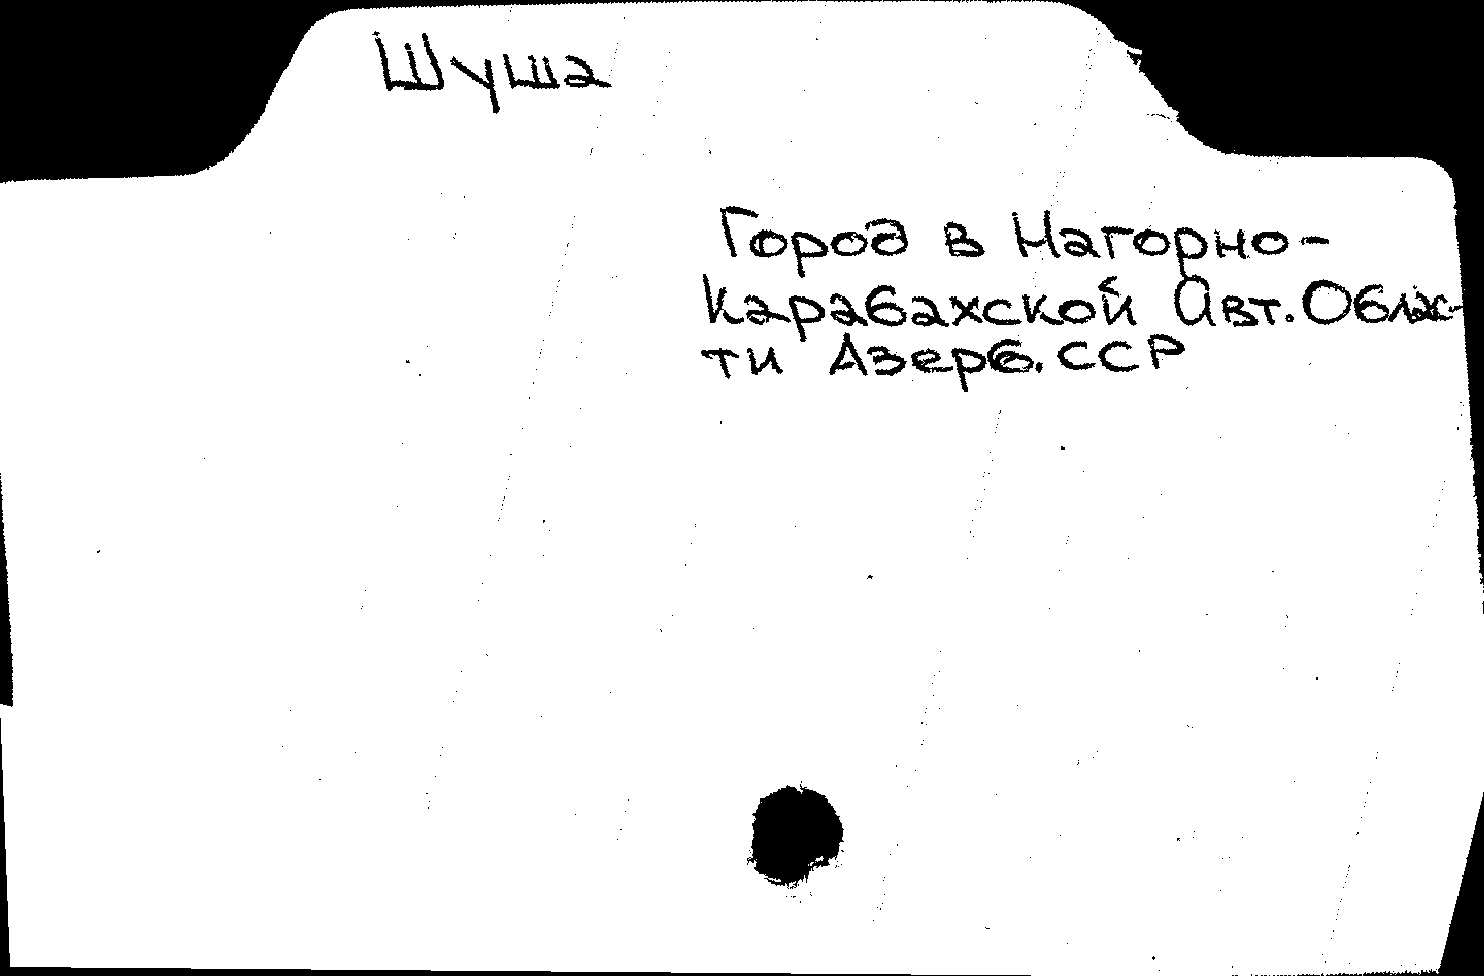 Шуша
Город в Нагорно-
Карабахской Авт. Облас-
ти Азерб. ССР